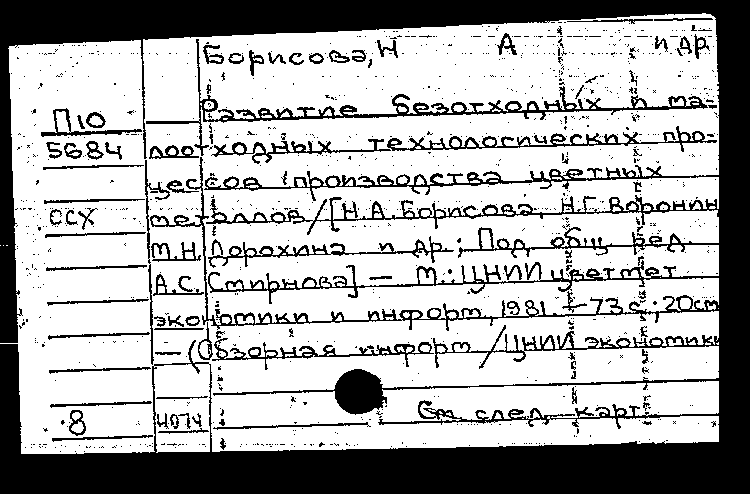 Борисова, Н А и др.
Развитие безотходных и ма-
П10
5684 лоотходных технологических про-
цессов производства цветных
ссх металлов / [Н.А. Борисова, Н.Г. Воронин,
М.Н. Дорохина и др.; Под общ. ред.
А.С. Смирнова]. — М.: ЦНИИцветмет
экономики и информ., 1981. — 73 с.; 20см
— (Обзорная информ / ЦНИИ экономики
См. след. карт.
8 4074